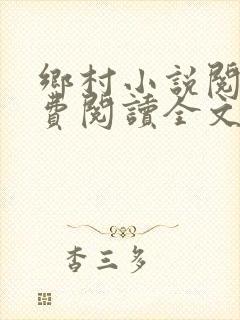 鄉村小說閱
費閱讀全文
杏三多